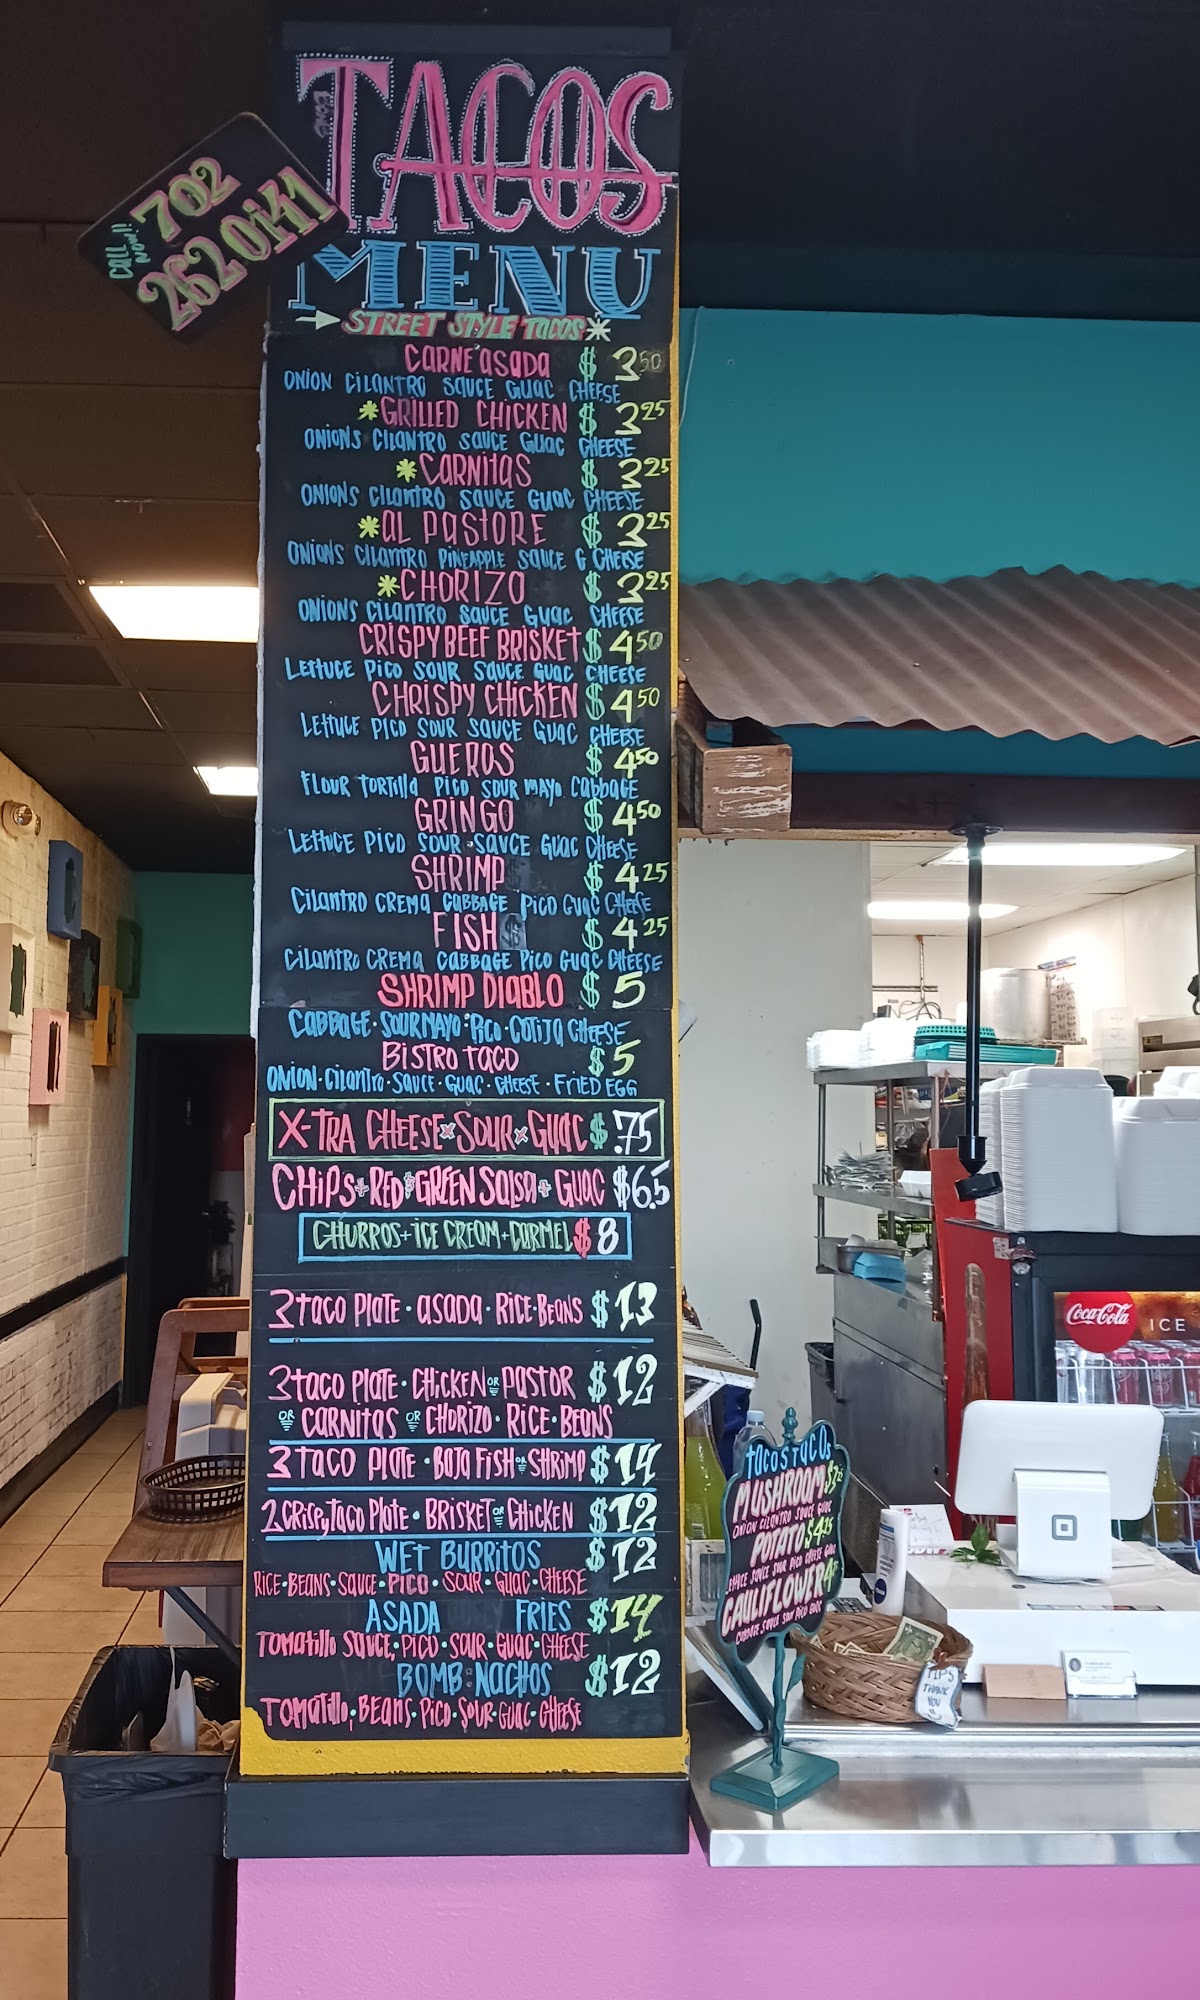 TACOS
MENU
CALL NOW!! 702
262 0141
STREET STYLE TACOS
CARNE ASADA $ 3 50
ONION CILANTRO SAUCE GUAC CHEESE
*GRILLED CHICKEN $ 3 25
ONIONS CILANTRO SAUCE GUAC CHEESE
*CARNITAS $ 3 25
ONIONS CILANTRO SAUCE GUAC CHEESE
*AL PASTORE $ 3 25
ONIONS CILANTRO PINEAPPLE SAUCE G CHEESE
*CHORIZO $ 3 25
ONIONS CILANTRO SAUCE GUAC CHEESE
CRISPY BEEF BRISKET $ 4 50
LETTUCE PICO SOUR SAUCE GUAC CHEESE
CHRISPY CHICKEN $ 4 50
LETTUCE PICO SOUR SAUCE GUAC CHEESE
GUEROS $ 4 50
FLOUR TORTILLA PICO SOUR MAYO CABBAGE
GRINGO $ 4 50
LETTUCE PICO SOUR SAUCE GUAC CHEESE
SHRIMP $ 4 25
CILANTRO CREMA CABBAGE PICO GUAC CHEESE
FISH $ 4 25
CILANTRO CREMA CABBAGE PICO GUAC CHEESE
SHRIMP DIABLO $ 5
CABBAGE · SOUR MAYO · PICO · COTIJA CHEESE
BISTRO TACO $ 5
ONION · CILANTRO · SAUCE · GUAC · CHEESE · FRIED EGG
X-TRA CHEESE × SOUR × GUAC $ .75
CHIPS + RED + GREEN SALSA + GUAC $6.5
CHURROS + ICE CREAM + CARMEL $ 8
3 TACO PLATE · ASADA · RICE · BEANS $ 13
3 TACO PLATE · CHICKEN OR PASTOR $ 12
OR CARNITAS OR CHORIZO · RICE · BEANS
3 TACO PLATE · BAJA FISH OR SHRIMP $ 14
2 CRISPY TACO PLATE · BRISKET OR CHICKEN $ 12
WET BURRITOS $ 12
RICE · BEANS · SAUCE · PICO · SOUR · GUAC · CHEESE
ASADA FRIES $ 14
TOMATILLO SAUCE, PICO · SOUR · GUAC · CHEESE
BOMB NACHOS $ 12
TOMATILLO, BEANS · PICO · SOUR · GUAC · CHEESE
TACOS TACOS
MUSHROOM
ONION CILANTRO SAUCE GUAC
POTATO $4.25
LETTUCE SAUCE SOUR PICO CHEESE GUAC
CAULIFLOWER
CABBAGE SAUCE SOUR PICO GUAC
TIPS
THANK
YOU
Coca-Cola
ICE